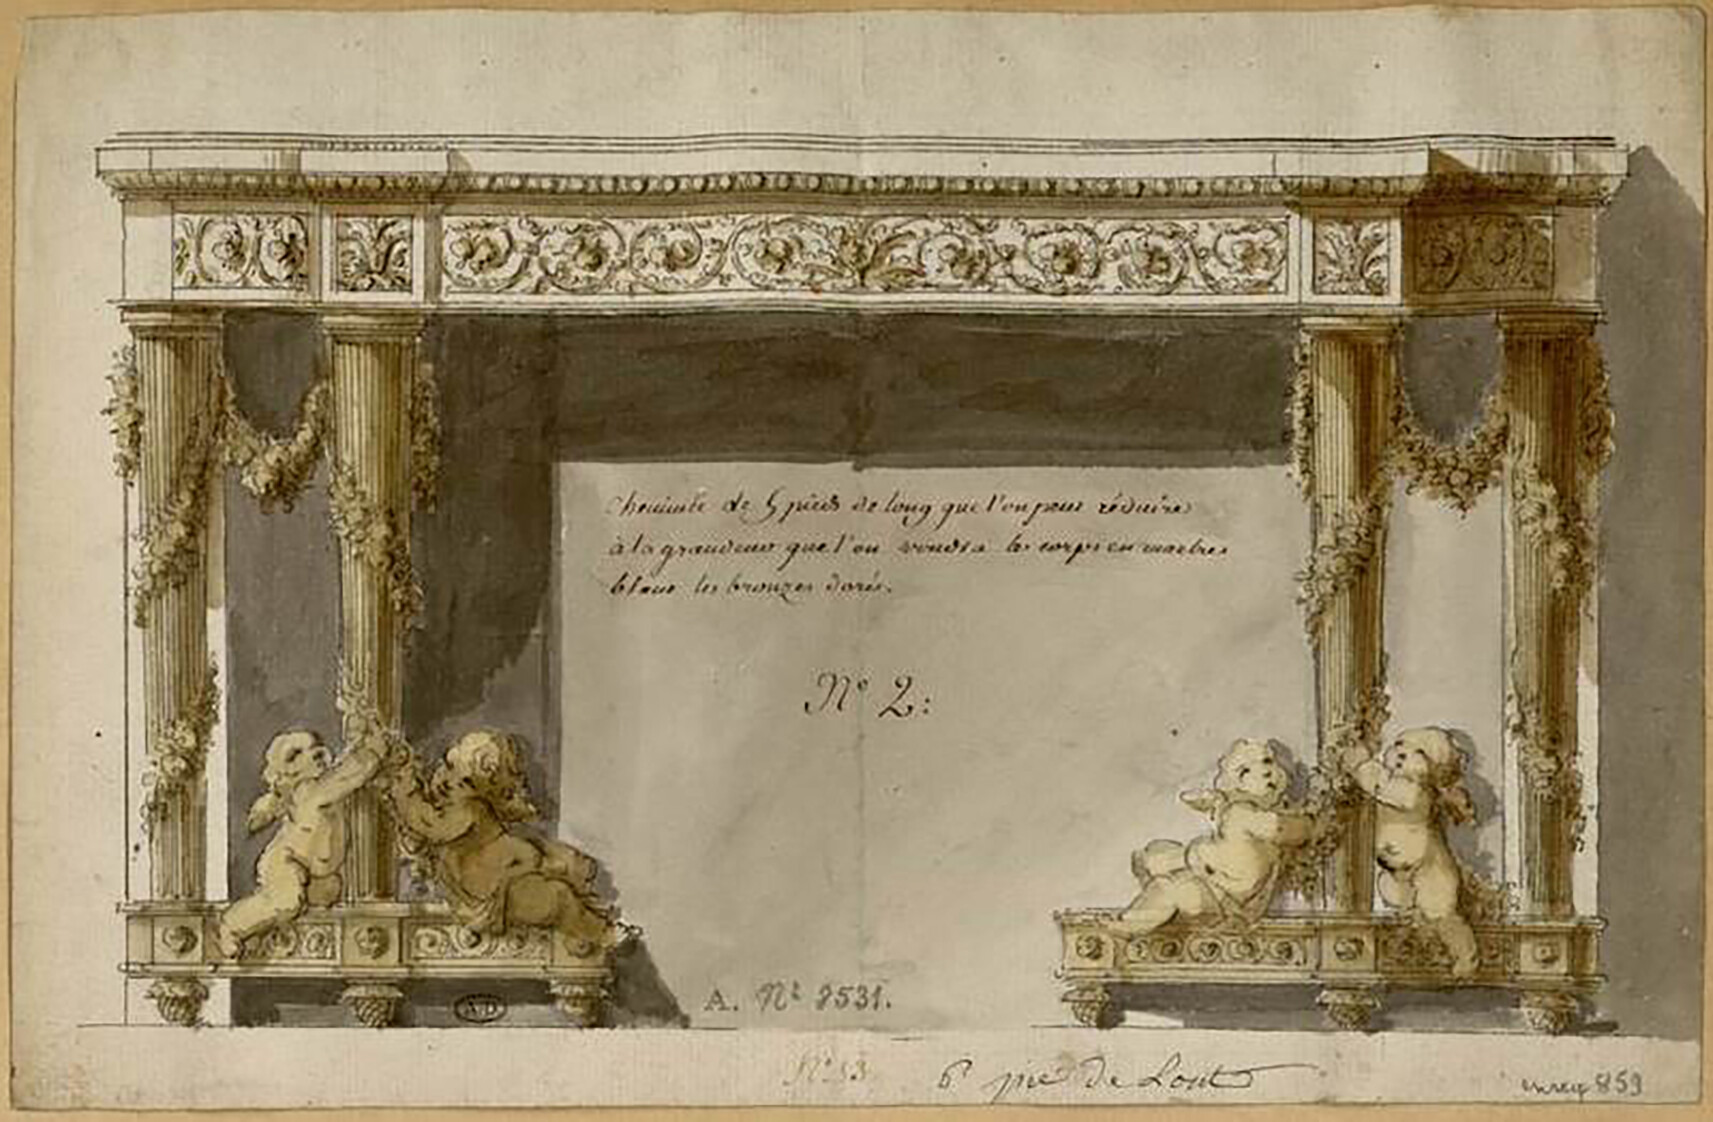 Cheminée de 5 pieds de long que l'on peut réduire
à la grandeur que l'on voudra le corps en marbre
blanc les bronzes dorés.
N° 2:
A. N° 8531.
N° 13
6 pie de Lont
859